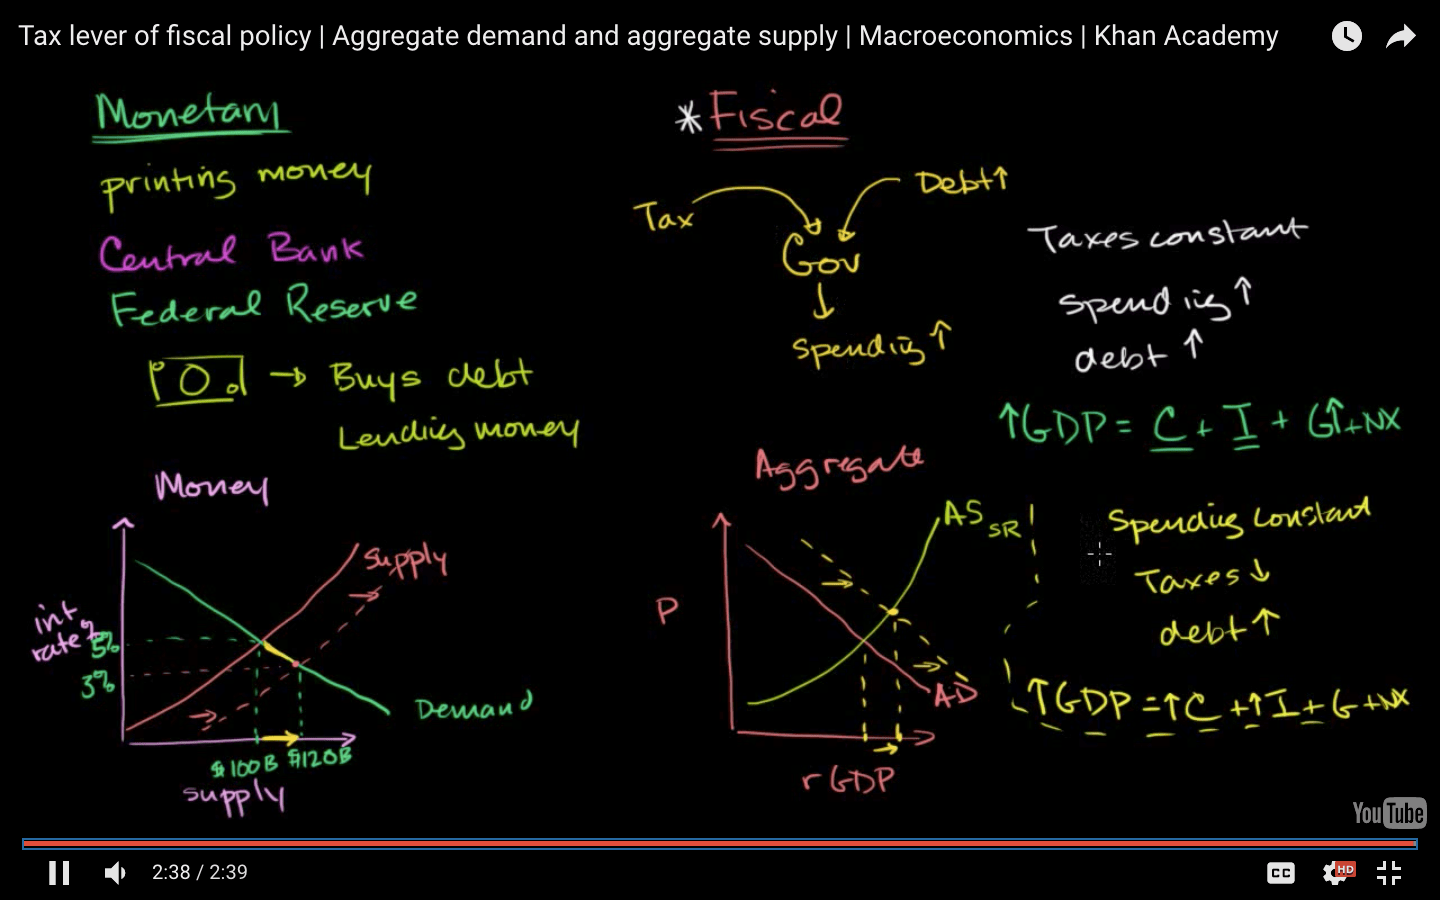 Tax lever of fiscal policy | Aggregate demand and aggregate supply | Macroeconomics | Khan Academy
Monetary
printing money
Central Bank
Federal Reserve
→ Buys debt
Lending money
Money
int
rate
5%
3%
supply
Demand
$100B $120B
supply
*Fiscal
Tax
Debt↑
Gov
↓
Spending↑
Aggregate
P
AS SR
AD
rGDP
Taxes constant
Spending↑
debt↑
↑GDP = C + I + G↑+NX
Spending constant
Taxes↓
debt↑
↑GDP =↑C +↑I + G +NX
YouTube
2:38 / 2:39
CC
HD